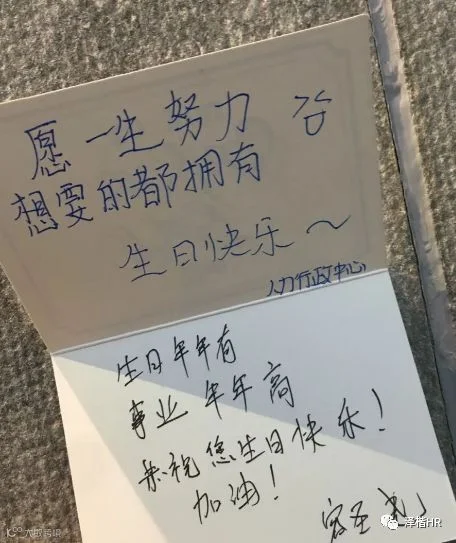 愿一生努力
想要的都拥有
生日快乐～
人力行政中心
生日年年有
事业年年高
恭祝您生日快乐！
加油！
泽楷HR